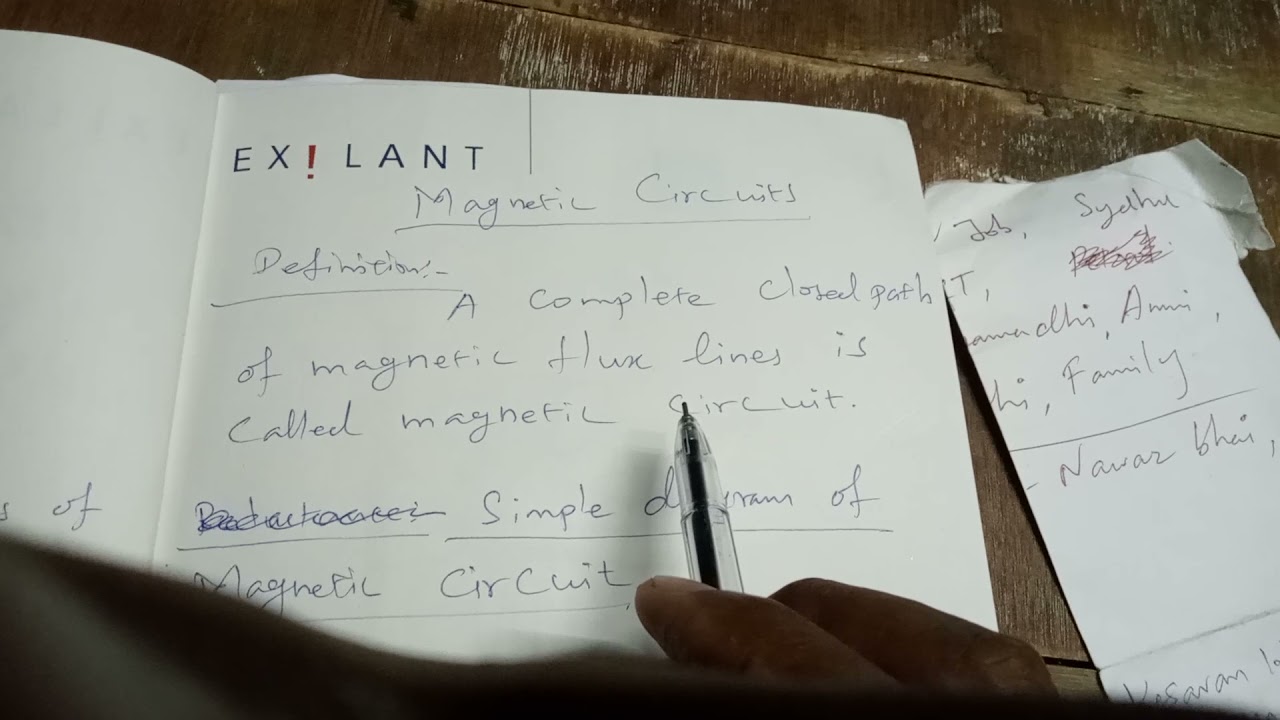 EX!LANT
Magnetic Circuits
Definition:-
A complete closed path
of magnetic flux lines is
called magnetic circuit.
Simple diagram of
Magnetic Circuit
s of
Job, Sydhu
IT,
Ammi,
hi, Family
- Nawaz bhai,